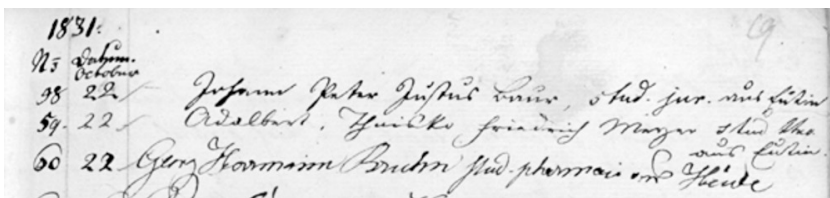 1831. 19
No Datum.
October
58 22 Johann Peter Justus Baur, stud. jur. aus Eutin
59. 22 Adalbert, Friedrich Meyer stud
aus Eutin.
60 22 Georg Herrmann Bruhn stud. pharmaci aus Heide